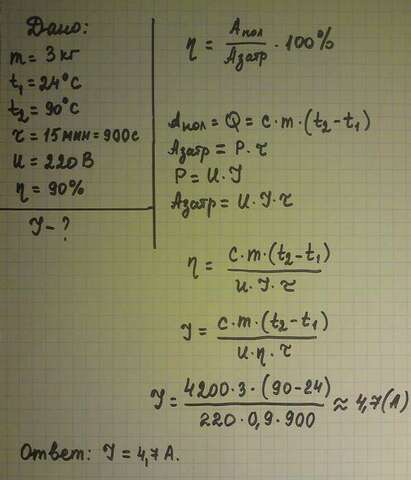 Дано:
m = 3 кг
t₁ = 24°C
t₂ = 90°C
τ = 15 мин = 900 с
u = 220 В
η = 90%
J - ?
η = Aпол / Aзатр · 100%
Aпол = Q = c · m · (t₂ - t₁)
Aзатр = P · τ
P = u · J
Aзатр = u · J · τ
η = c · m · (t₂ - t₁) / u · J · τ
J = c · m · (t₂ - t₁) / u · η · τ
J = 4200 · 3 · (90 - 24) / 220 · 0,9 · 900 ≈ 4,7 (A)
Ответ: J = 4,7 A.